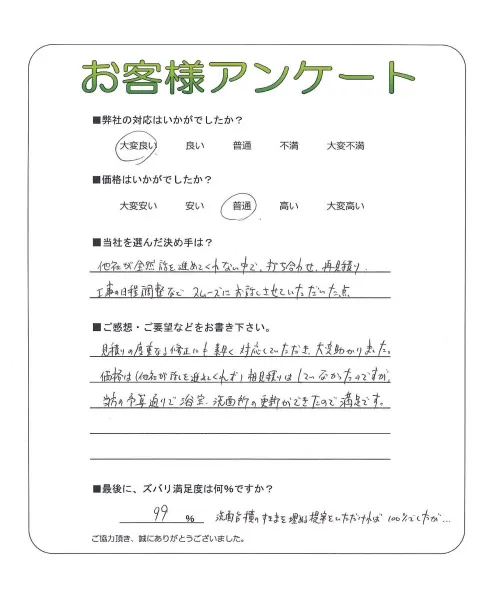 お客様アンケート
■弊社の対応はいかがでしたか？
大変良い 良い 普通 不満 大変不満
■価格はいかがでしたか？
大変安い 安い 普通 高い 大変高い
■当社を選んだ決め手は？
他社が全然話を進めてくれない中で、打ち合わせ、再見積り、
工事の日程調整など スムーズにお話しさせていただいた点
■ご感想・ご要望などをお書き下さい。
見積りの度重なる修正にも素早く対応していただき、大変助かりました。
価格は（他社が話しを進めてくれず）相見積りはしていなかったのですが、
当方の予算通りで浴室、洗面所の更新ができたので満足です。
■最後に、ズバリ満足度は何%ですか？
99 % 洗面台横のすきまを埋める提案をいただければ 100%でしたが…
ご協力頂き、誠にありがとうございました。